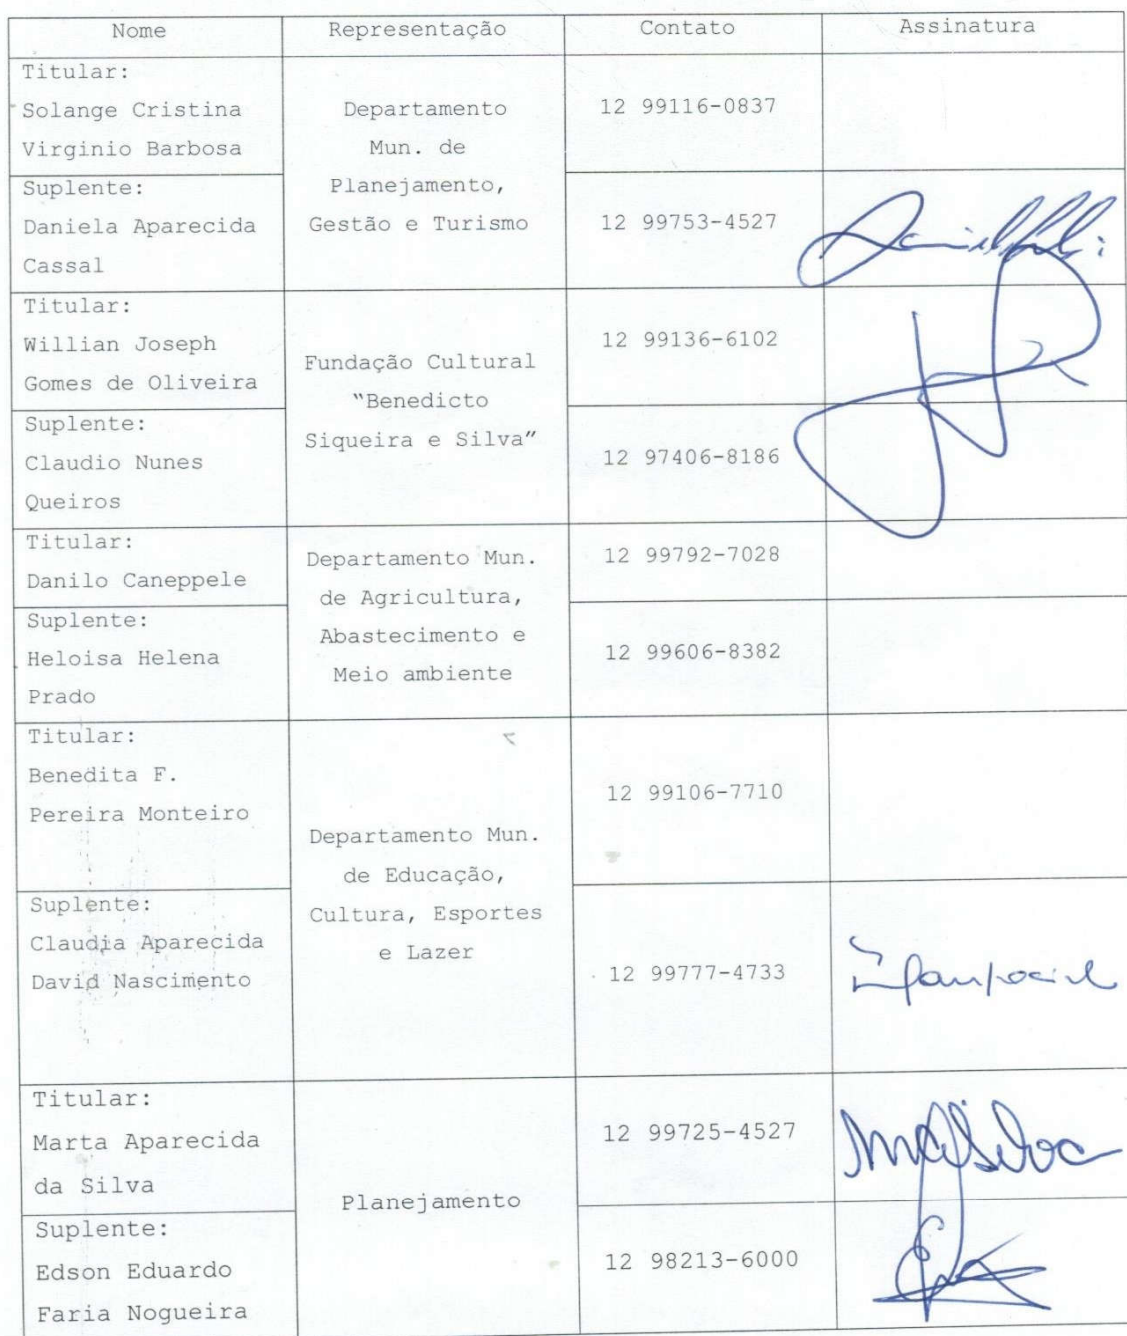 Nome Representação Contato Assinatura
Titular:
Solange Cristina
Virginio Barbosa
Departamento
Mun. de
Planejamento,
Gestão e Turismo
12 99116-0837
Suplente:
Daniela Aparecida
Cassal
12 99753-4527
Titular:
Willian Joseph
Gomes de Oliveira
Fundação Cultural
"Benedicto
Siqueira e Silva"
12 99136-6102
Suplente:
Claudio Nunes
Queiros
12 97406-8186
Titular:
Danilo Caneppele
Departamento Mun.
de Agricultura,
Abastecimento e
Meio ambiente
12 99792-7028
Suplente:
Heloisa Helena
Prado
12 99606-8382
Titular:
Benedita F.
Pereira Monteiro
Departamento Mun.
de Educação,
Cultura, Esportes
e Lazer
12 99106-7710
Suplente:
Claudia Aparecida
David Nascimento
12 99777-4733
Titular:
Marta Aparecida
da Silva
Planejamento
12 99725-4527
MASilva
Suplente:
Edson Eduardo
Faria Nogueira
12 98213-6000